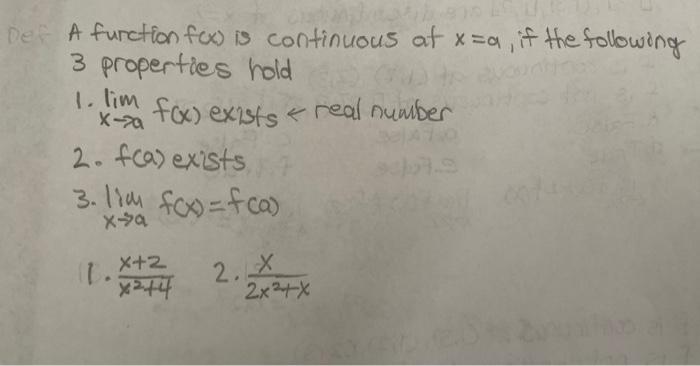 Def A function f(x) is continuous at x=a, if the following
3 properties hold
1. lim x→a f(x) exists ← real number
2. f(a) exists
3. lim x→a f(x)=f(a)
1. x+2/x²+4 2. x/2x²+x